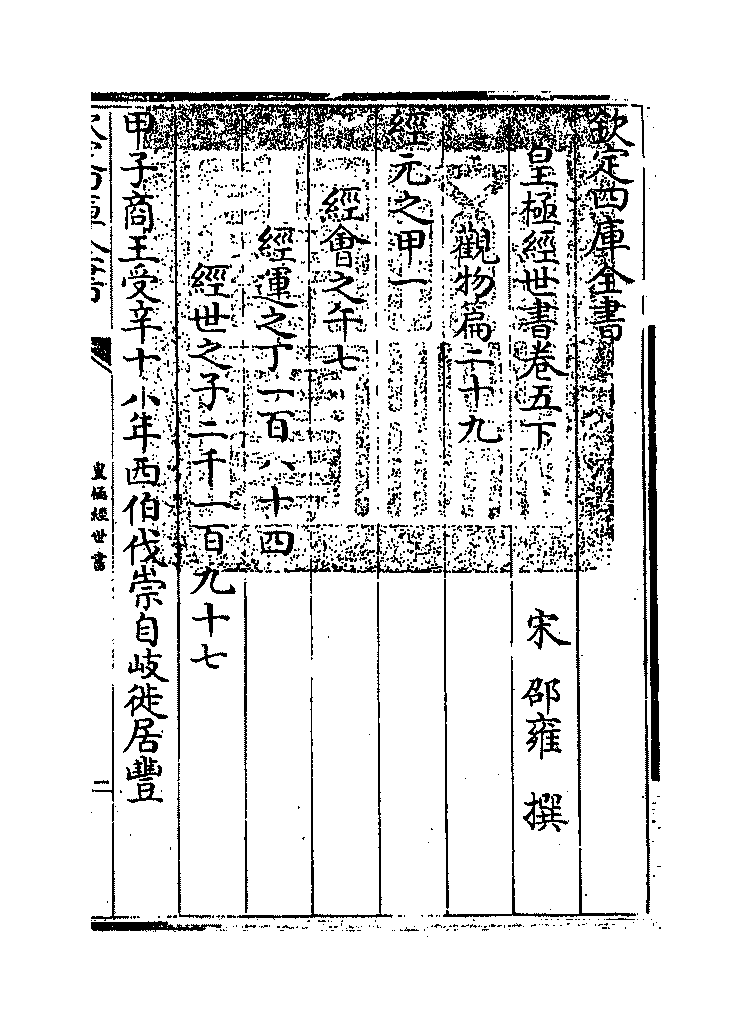 欽定四庫全書
皇極經世書卷五下
宋 邵雍 撰
觀物篇二十九
經元之甲一
經會之午七
經運之丁一百八十四
經世之子二千一百九十七
甲子商王受辛十八年西伯伐崇自岐徙居豐
皇極經世書
二